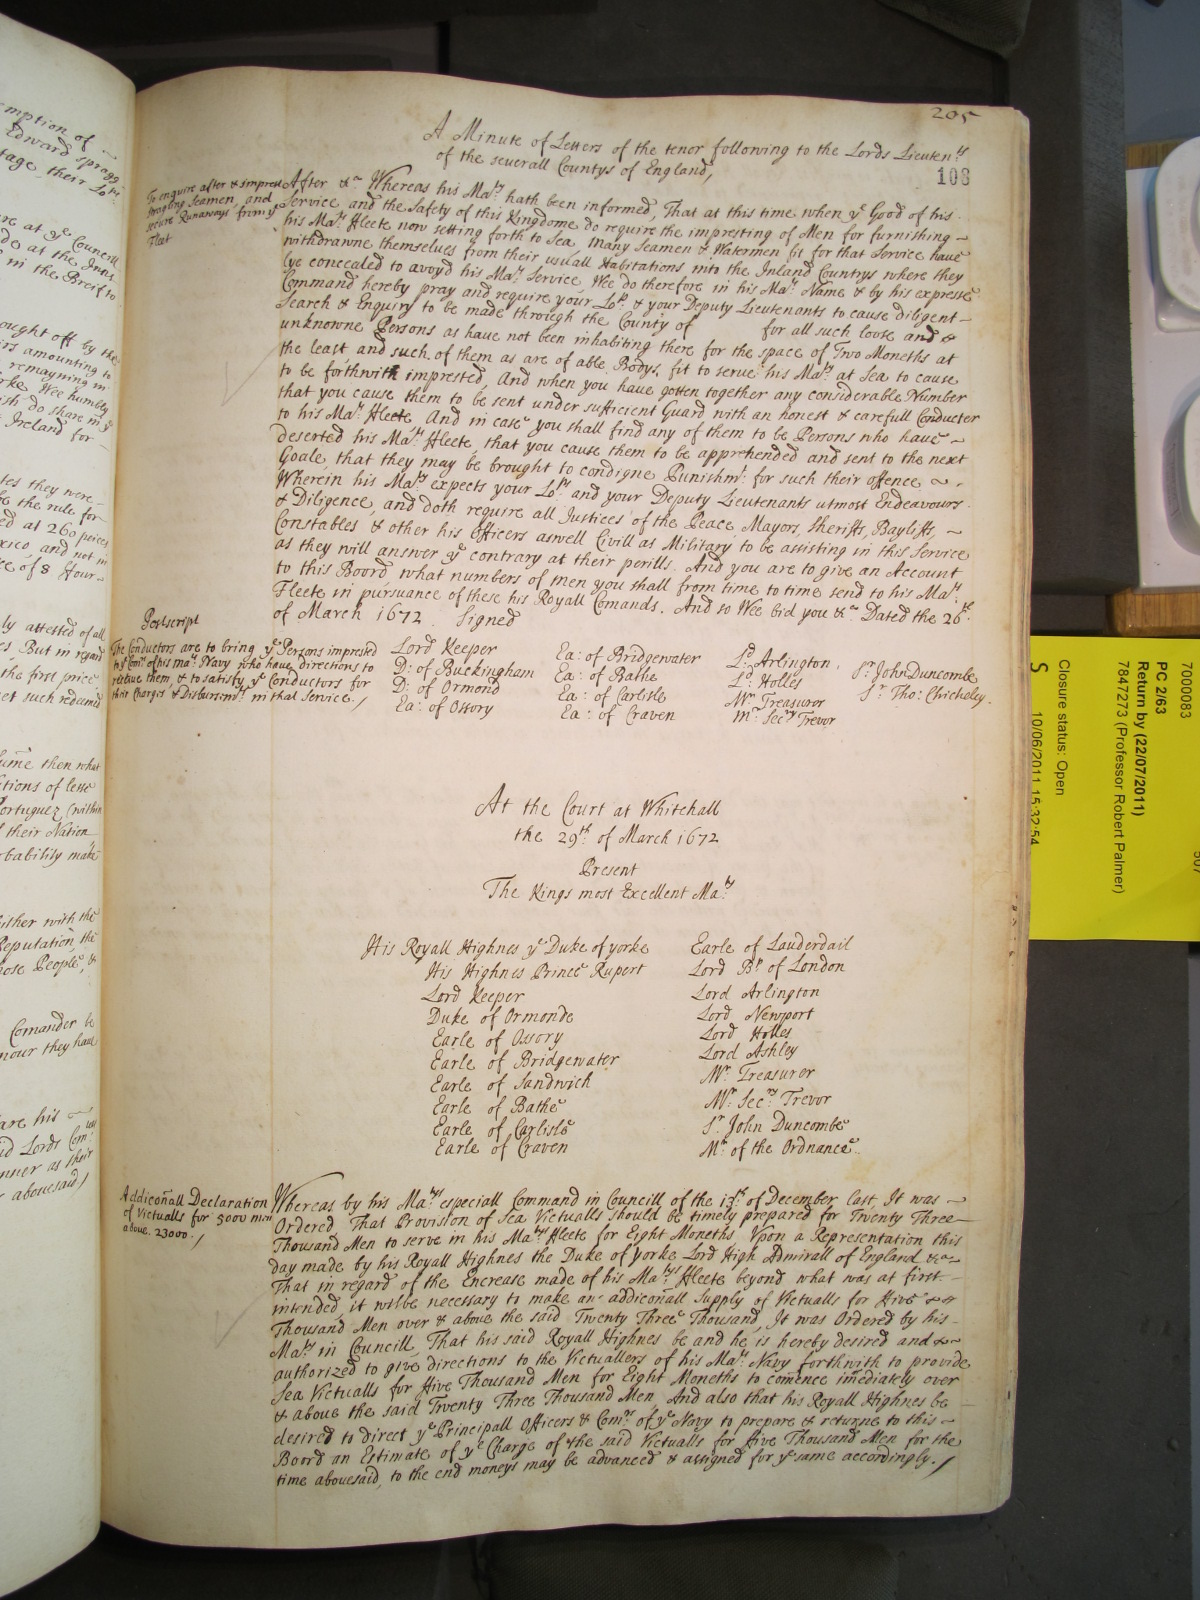 205
108
A Minute of Letters of the tenor following to the Lords Lieuten:ts
of the severall Countys of England,
To enquire after & imprest
stragling Seamen, and
secure Runaways from ye
Fleet
After &ca Whereas his Ma:ty hath been informed, That at this time when ye Good of his
Service and the Safety of this Kingdome do require the impresting of Men for furnishing
his Ma:ts Fleete now setting forth to Sea, many Seamen & Watermen fit for that Service have
withdrawne themselves from their usuall Habitations into the Inland Countys where they
lye concealed to avoyd his Ma:ts Service, Wee do therefore in his Ma:ts Name & by his expresse
Command hereby pray and require your Lo:p & your Deputy Lieutenants to cause diligent
Search & Enquiry to be made through the County of for all such loose and &
unknowne Persons as have not been inhabiting there for the space of Two Moneths at
the least, and such of them as are of able Bodys, fit to serve his Ma:ty at Sea to cause
to be forthwith imprested, And when you have gotten together any considerable Number
that you cause them to be sent under sufficient Guard with an honest & carefull Conductor
to his Ma:ts Fleete And in case you shall find any of them to be Persons who have
deserted his Ma:ts Fleete, that you cause them to be apprehended and sent to the next
Goale, that they may be brought to condigne Punishm:t for such their offence
Wherein his Ma:ty expects your Lo:ps and your Deputy Lieutenants utmost Endeavours
& Diligence, and doth require all Justices of the Peace, Mayors, Sheriffs, Bayliffs,
Constables & other his Officers aswell Civill as Military to be assisting in this Service
as they will answer ye contrary at their perills. And you are to give an Account
to this Board, what numbers of men you shall from time to time send to his Ma:ts
Fleete in pursuance of these his Royall Comands. And so Wee bid you &ca Dated the 26th
of March 1672 Signed
Postscript
The Conductors are to bring ye Persons imprested
to ye Com:rs of his ma:ts Navy who have directions to
receive them, & to satisfy ye Conductors for
their Charges & Disbursm:ts in that Service./
Lord Keeper
D: of Buckingham
D: of Ormond
Ea: of Ossory
Ea: of Bridgewater
Ea: of Bathe
Ea: of Carlisle
Ea: of Craven
Ld: Arlington
Ld: Holles
Mr: Treasuror
Mr: Secry Trevor
Sr: John Duncombe
Sr: Tho: Chicheley.
At the Court at Whitehall
the 29th of March 1672
Present
The Kings most Excellent Ma:ty
His Royall Highnes ye Duke of yorke
His Highnes Prince Rupert
Lord Keeper
Duke of Ormonde
Earle of Ossory
Earle of Bridgewater
Earle of Sandwich
Earle of Bathe
Earle of Carlisle
Earle of Craven
Earle of Lauderdail
Lord Bp of London
Lord Arlington
Lord Newport
Lord Holles
Lord Ashley
Mr: Treasurer
Mr: Secry Trevor
Sr: John Duncombe
Mr: of the Ordnance
Addiconall Declaration
of Victualls for 5000 men
above. 23000./
Whereas by his Ma:ts especiall Command in Councill of the 13th of December last, It was
Ordered That Provision of Sea Victualls should be timely prepared for Twenty Three
Thousand Men to serve in his Ma:ts Fleete for Eight Moneths, Vpon a Representation this
day made by his Royall Highnes the Duke of yorke Lord High Admirall of England &ca
That in regard of the Encrease made of his Ma:ts Fleete beyond what was at first
intended it wilbe necessary to make an addiconall Supply of Victualls for Five &
Thousand Men over & above the said Twenty Three Thousand, It was Ordered by his
Ma:ty in Councill, That his said Royall Highnes be and he is hereby desired and &
authorized to give directions to the Victuallers of his Ma:ts Navy forthwith to provide
Sea Victualls for Five Thousand Men for Eight Moneths to comence imediately over
& above the said Twenty Three Thousand Men, And also that his Royall Highnes be
desired to direct ye Principall Officers & Com:rs of ye Navy to prepare & returne to this
Boord an Estimate of ye Charge of the said Victualls for Five Thousand Men for the
time abovesaid, to the end moneys may be advanced & assigned for ye same accordingly./
7000083
PC 2/63
Return by (22/07/2011)
7847273 (Professor Robert Palmer)
Closure status: Open
S 10/06/2011 15:32:54